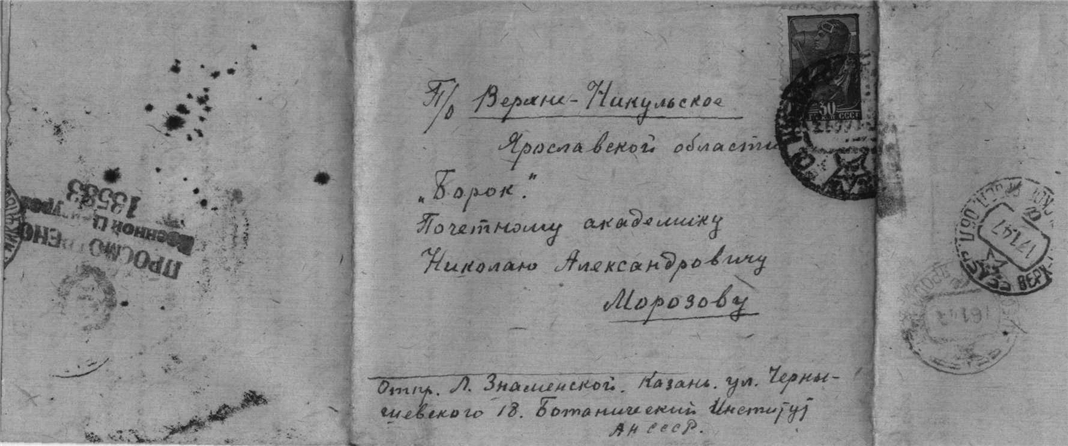 П/о Верхне-Никульское
Ярославской области
„Борок."
Почетному академику
Николаю Александровичу
Морозову
Отпр. Л. Знаменской. Казань. ул. Черны-
шевского 18. Ботанический Институт
АН СССР.
30
СССР
ПРОСМОТРЕНО
Военной Цензурой
13583